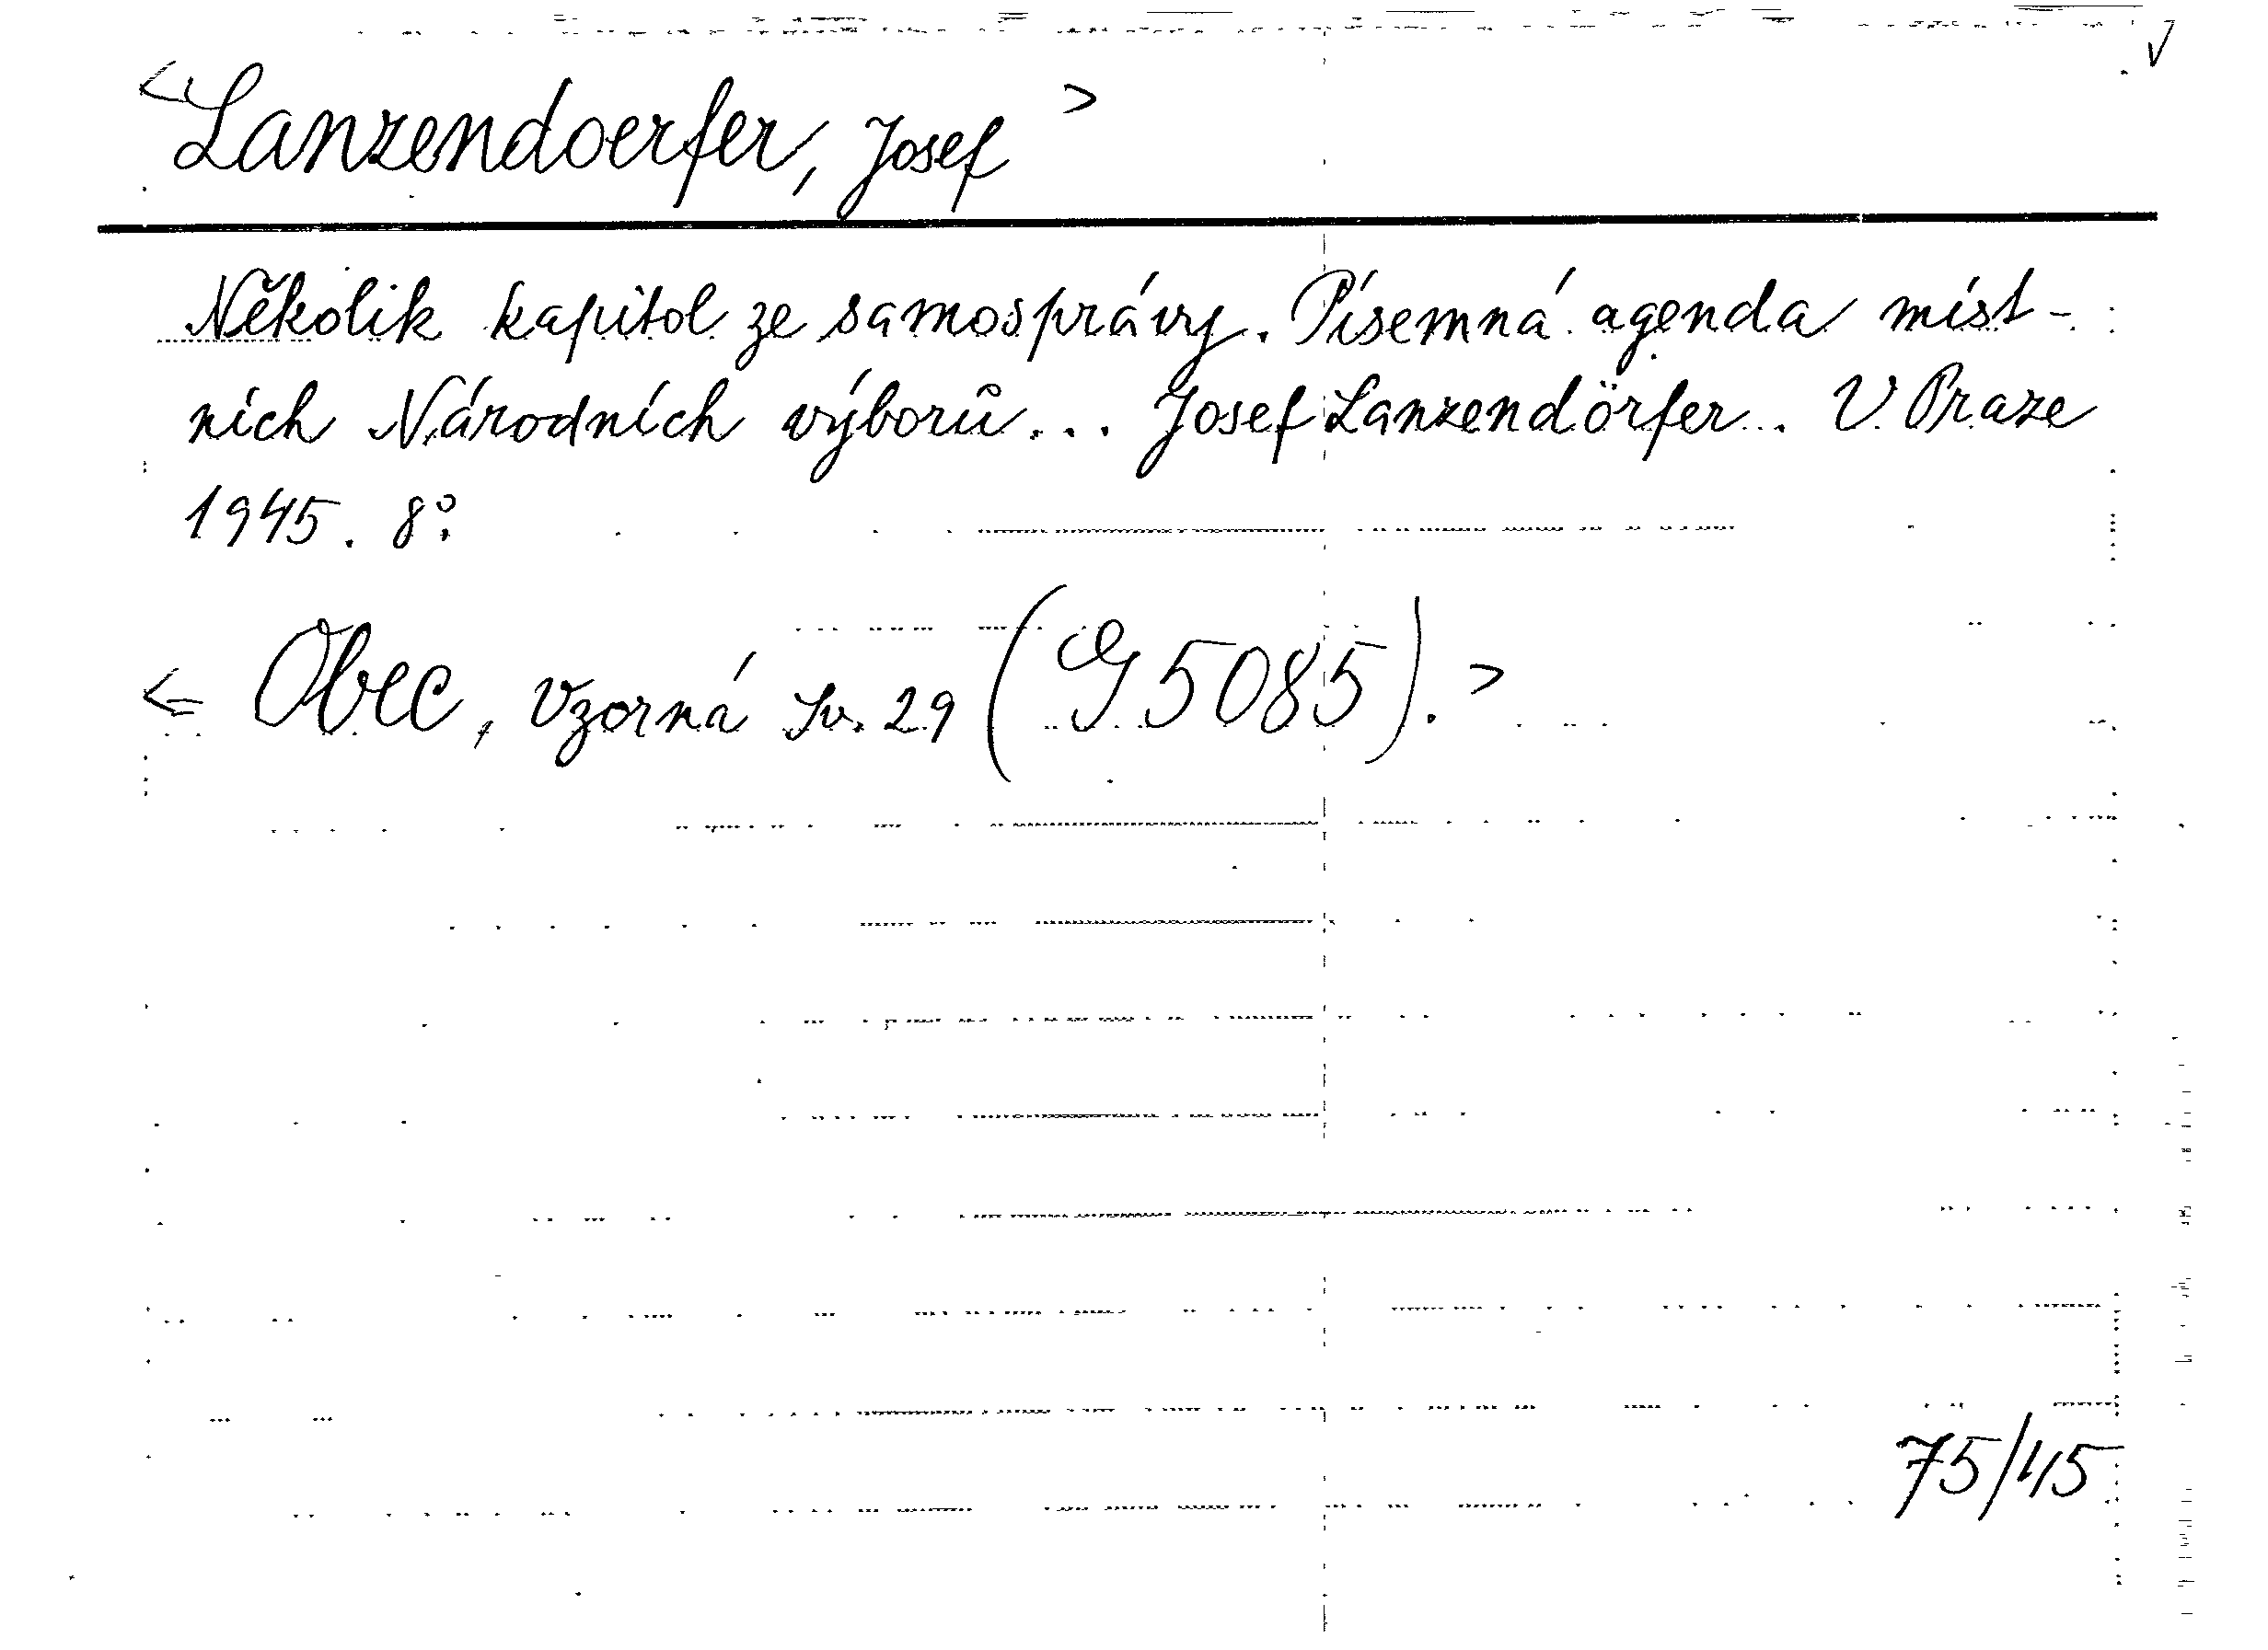 <Lanzendoerfer, Josef>
Několik kapitol ze samosprávy. Písemná agenda míst-
ních Národních výborů... Josef Lanzendörfer... V Praze
1945. 8°.
< Obec, vzorná sv. 29 (G 5085). >
75/45